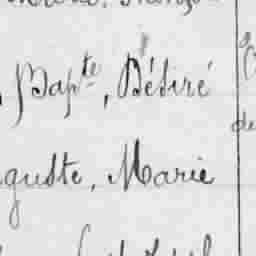 Bapte, Désiré
guste, Marie
de